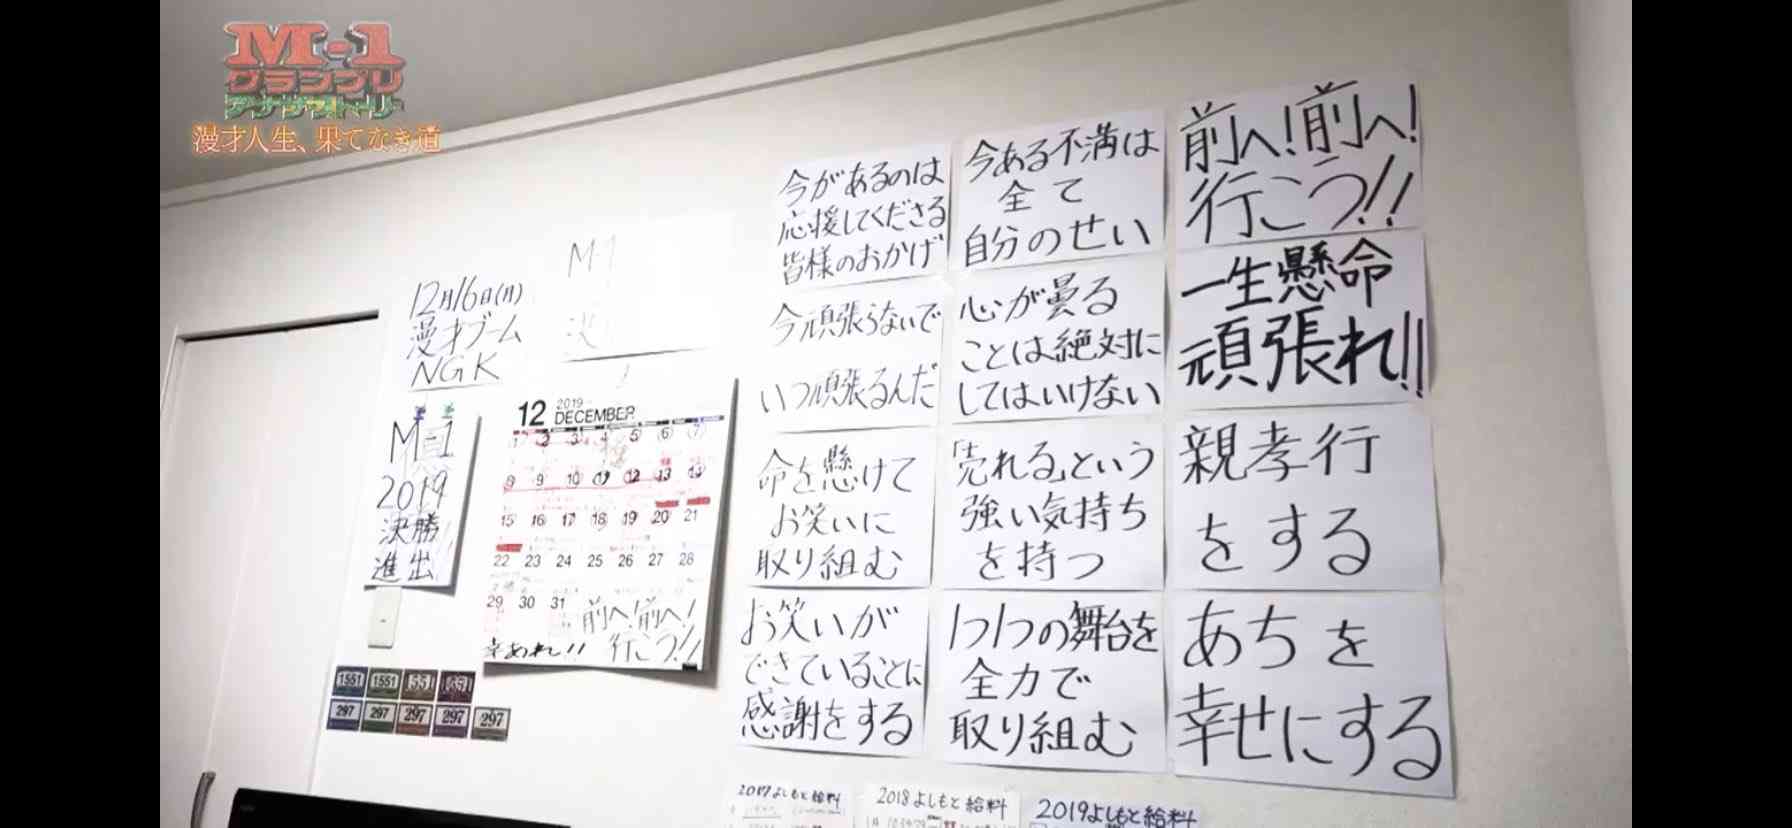 M-1
グランプリ
アナザーストーリー
漫才人生、果てなき道
12月16日(月)
漫才ブーム
NGK
M-1
決
M-1
2019
決勝
進出
12 2019 DECEMBER
1 2 3 4 5 6 7
8 9 10 11 12 13 14
15 16 17 18 19 20 21
22 23 24 25 26 27 28
29 30 31
前へ!前へ!
行こう!!
幸あれ!!
1551 1551 1551 1551
297 297 297 297 297
今があるのは
応援してくださる
皆様のおかげ
今ある不満は
全て
自分のせい
前へ!前へ!
行こう!!
今頑張らないで
いつ頑張るんだ
心が曇る
ことは絶対に
してはいけない
一生懸命
頑張れ!!
命を懸けて
お笑いに
取り組む
「売れる」という
強い気持ち
を持つ
親孝行
をする
お笑いが
できていることに
感謝をする
1つ1つの舞台を
全力で
取り組む
あちを
幸せにする
2017よしもと給料
2018よしもと給料
2019よしもと給料